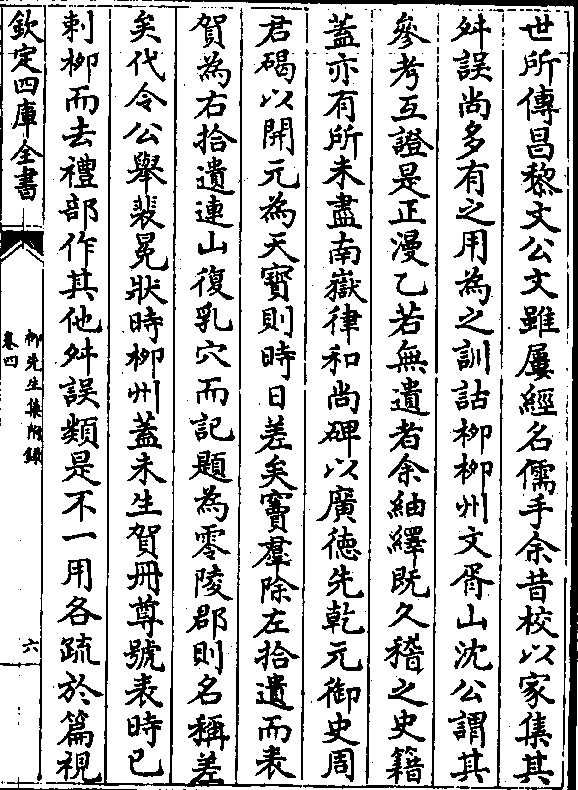 世所傳昌黎文公文雖屢經名儒手余昔校以家集其
舛誤尚多有之用為之訓詁柳柳州文胥山沈公謂其
參考互證是正漫乙若無遺者余紬繹既久稽之史籍
蓋亦有所未盡南嶽律和尚碑以廣德先乾元御史周
君碣以開元為天寶則時日差矣竇羣除左拾遺而表
賀為右拾遺連山復乳穴而記題為零陵郡則名稱差
矣代令公舉裴冕狀時柳州蓋未生賀冊尊號表時已
刺柳而去禮部作其他舛誤類是不一用各疏於篇視
欽定四庫全書
柳先生集附錄
卷四
六